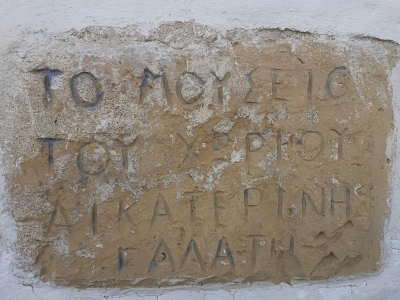 ΤΟ ΜΟΥΣΕΙΟ
ΤΟΥ ΧΩΡΙΟΥ
ΑΙΚΑΤΕΡΙΝΗ
ΓΑΛΑΤΗ